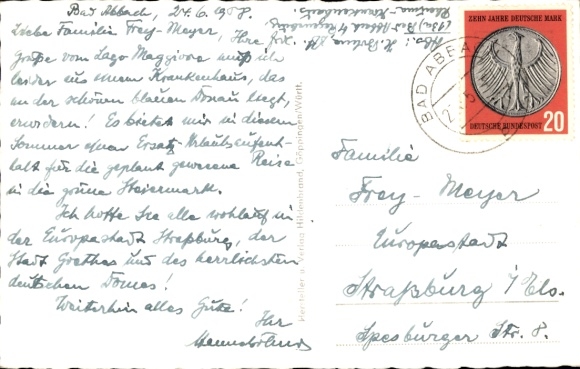 Bad Abbach, 24.6.1958.
Liebe Familie Frey-Meyer, Ihre frdl.
Grüße vom Lago Maggiore muß ich
leider aus einem Krankenhaus, das
an der schönen blauen Donau liegt,
erwidern! Es bietet mir in diesem
Sommer einen Ersatz-Urlaubsaufent-
halt für die geplant gewesene Reise
in die grüne Steiermark.
Ich hoffe Sie alle wohlauf in
der Europastadt Straßburg, der
Stadt Goethes und des herrlichsten
deutschen Domes!
Weiterhin alles Gute!
Ihr
Abs.:
Hersteller u. Verlag Hildenbrand, Göppingen/Württ.
ZEHN JAHRE DEUTSCHE MARK
DEUTSCHE BUNDESPOST 20
BAD ABBA
Familie
Frey-Meyer
Europastadt
Straßburg i/Els.
Spesburger Str. 8.